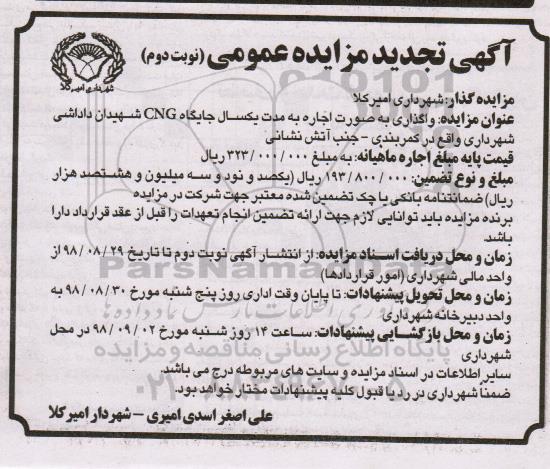 آگهی تجدید مزایده عمومی (نوبت دوم)
شهرداری امیرکلا
مزایده گذار: شهرداری امیرکلا
عنوان مزایده: واگذاری به صورت اجاره به مدت یکسال جایگاه CNG شهیدان داداشی
شهرداری واقع در کمربندی - جنب آتش نشانی
قیمت پایه مبلغ اجاره ماهیانه: به مبلغ ۳۲۳/۰۰۰/۰۰۰ ریال
مبلغ و نوع تضمین: ۱۹۳/۸۰۰/۰۰۰ ریال (یکصد و نود و سه میلیون و هشتصد هزار
ریال) ضمانتنامه بانکی یا چک تضمین شده معتبر جهت شرکت در مزایده
برنده مزایده باید توانایی لازم جهت ارائه تضمین انجام تعهدات را قبل از عقد قرارداد دارا
باشد.
زمان و محل دریافت اسناد مزایده: از انتشار آگهی نوبت دوم تا تاریخ ۹۸/۰۸/۲۹ از
واحد مالی شهرداری (امور قراردادها)
زمان و محل تحویل پیشنهادات: تا پایان وقت اداری روز پنج شنبه مورخ ۹۸/۰۸/۳۰ به
واحد دبیرخانه شهرداری
زمان و محل بازگشایی پیشنهادات: ساعت ۱۴ روز شنبه مورخ ۹۸/۰۹/۰۲ در محل
شهرداری
سایر اطلاعات در اسناد مزایده و سایت های مربوطه درج می باشد.
ضمناً شهرداری در رد یا قبول کلیه پیشنهادات مختار خواهد بود.
علی اصغر اسدی امیری - شهردار امیرکلا
ParsNamadData
پایگاه اطلاع رسانی مناقصه و مزایده